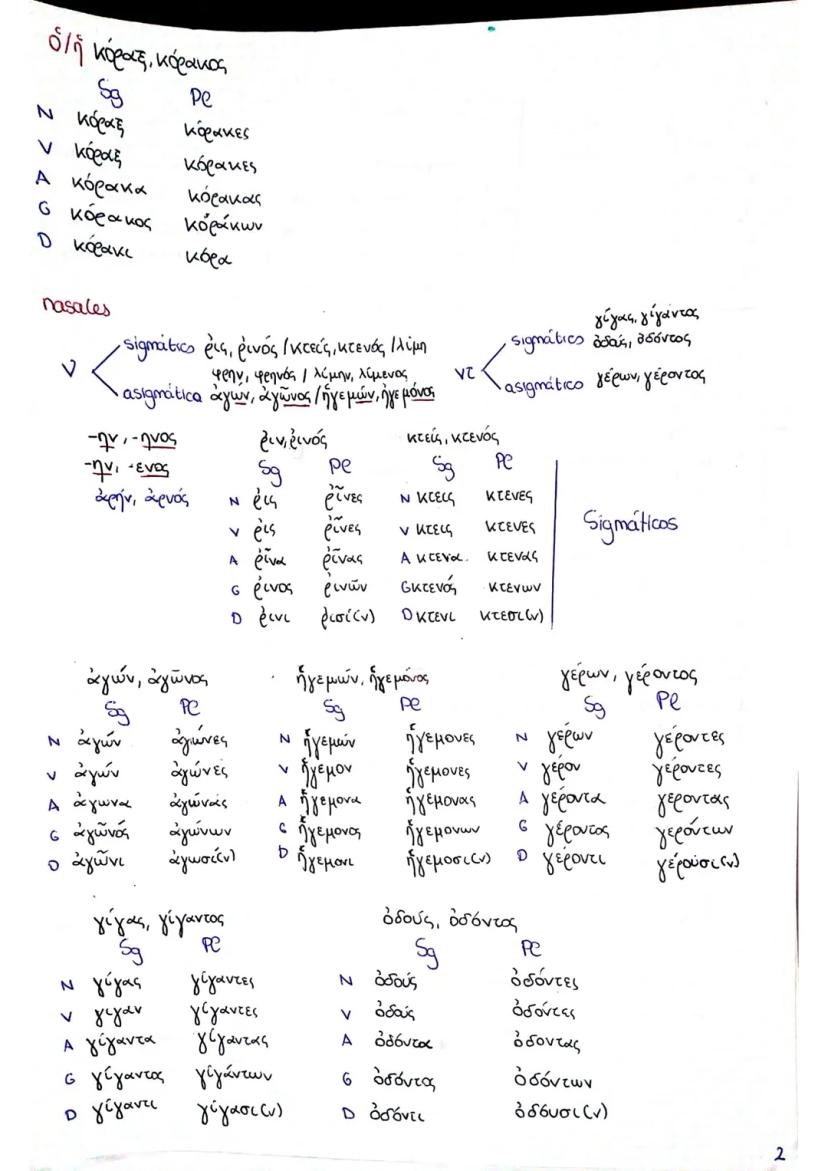 ὁ/ἡ κόραξ, κόρακος
Sg Pl
N κόραξ κόρακες
V κόραξ κόρακες
A κόρακα κόρακας
G κόρακος κοράκων
D κόρακι κόρα
nasales
γίγας, γίγαντος
ν sigmático ῥις, ῥινός / κτείς, κτενός / λίμη ντ sigmático ὀδούς, ὀδόντος
φρην, φρηνός / λίμην, λίμενος
asigmática ἀγων, ἀγωνος / ἡγεμών, ἡγεμόνος asigmático γέρων, γέροντος
-ην, -ηνος ῥιν, ῥινός κτείς, κτενός
-ην, -ενος Sg Pl Sg Pl
ἀρήν, ἀρνός N ῥις ῥῖνες N κτεις κτενες Sigmáticos
V ῥις ῥῖνες V κτεις κτενες
A ῥῖνα ῥῖνας A κτενα κτενας
G ῥινος ῥινῶν G κτενός κτενων
D ῥινι ῥισί(ν) D κτενι κτεσι(ν)
ἀγών, ἀγῶνος ἡγεμών, ἡγεμόνος γέρων, γέροντος
Sg Pl Sg Pl Sg Pl
N ἀγών ἀγώνες N ἡγεμών ἡγεμονες N γέρων γέροντες
V ἀγών ἀγώνες V ἡγεμον ἡγεμονες V γέρον γέροντες
A ἀγωνα ἀγώνας A ἡγεμονα ἡγεμονας A γέροντα γέροντας
G ἀγῶνός ἀγώνων G ἡγεμονος ἡγεμονων G γέροντος γερόντων
D ἀγῶνι ἀγωσί(ν) D ἡγεμονι ἡγεμοσι(ν) D γέροντι γέρουσι(ν)
γίγας, γίγαντος ὀδούς, ὀδόντος
Sg Pl Sg Pl
N γίγας γίγαντες N ὀδούς ὀδόντες
V γιγαν γίγαντες V ὀδούς ὀδόντες
A γίγαντα γίγαντας A ὀδόντα ὀδοντας
G γίγαντος γίγάντων G ὀδόντος ὀδόντων
D γίγαντι γίγασι(ν) D ὀδόντι ὀδόυσι(ν)
2